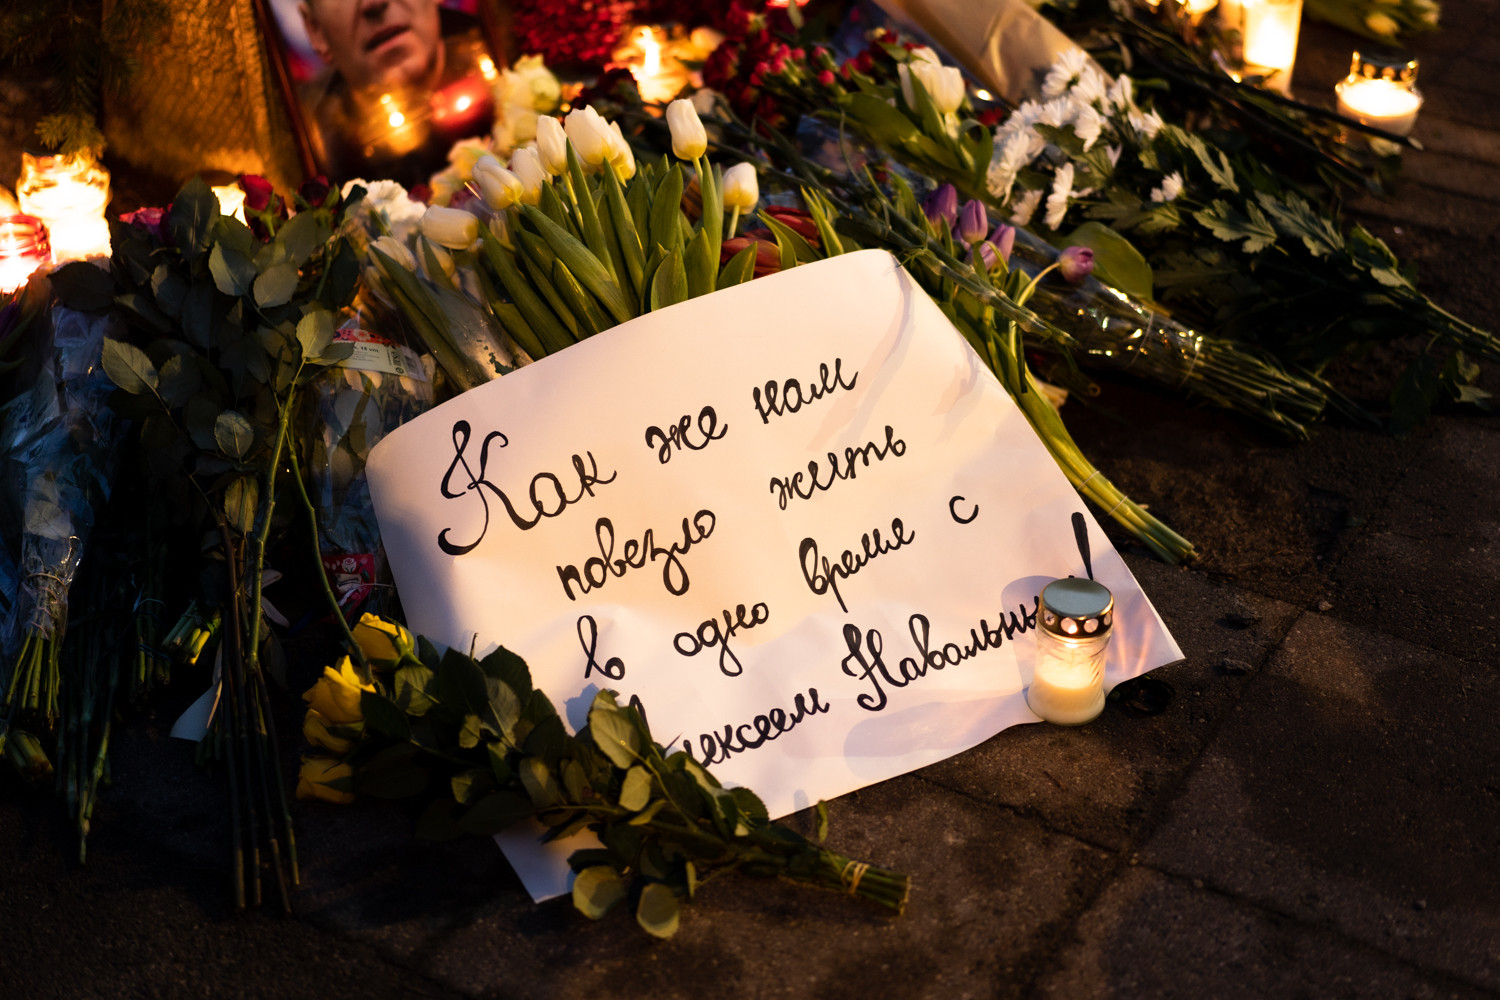 Как же нам
повезло жить
в одно время с
Алексеем Навальны !